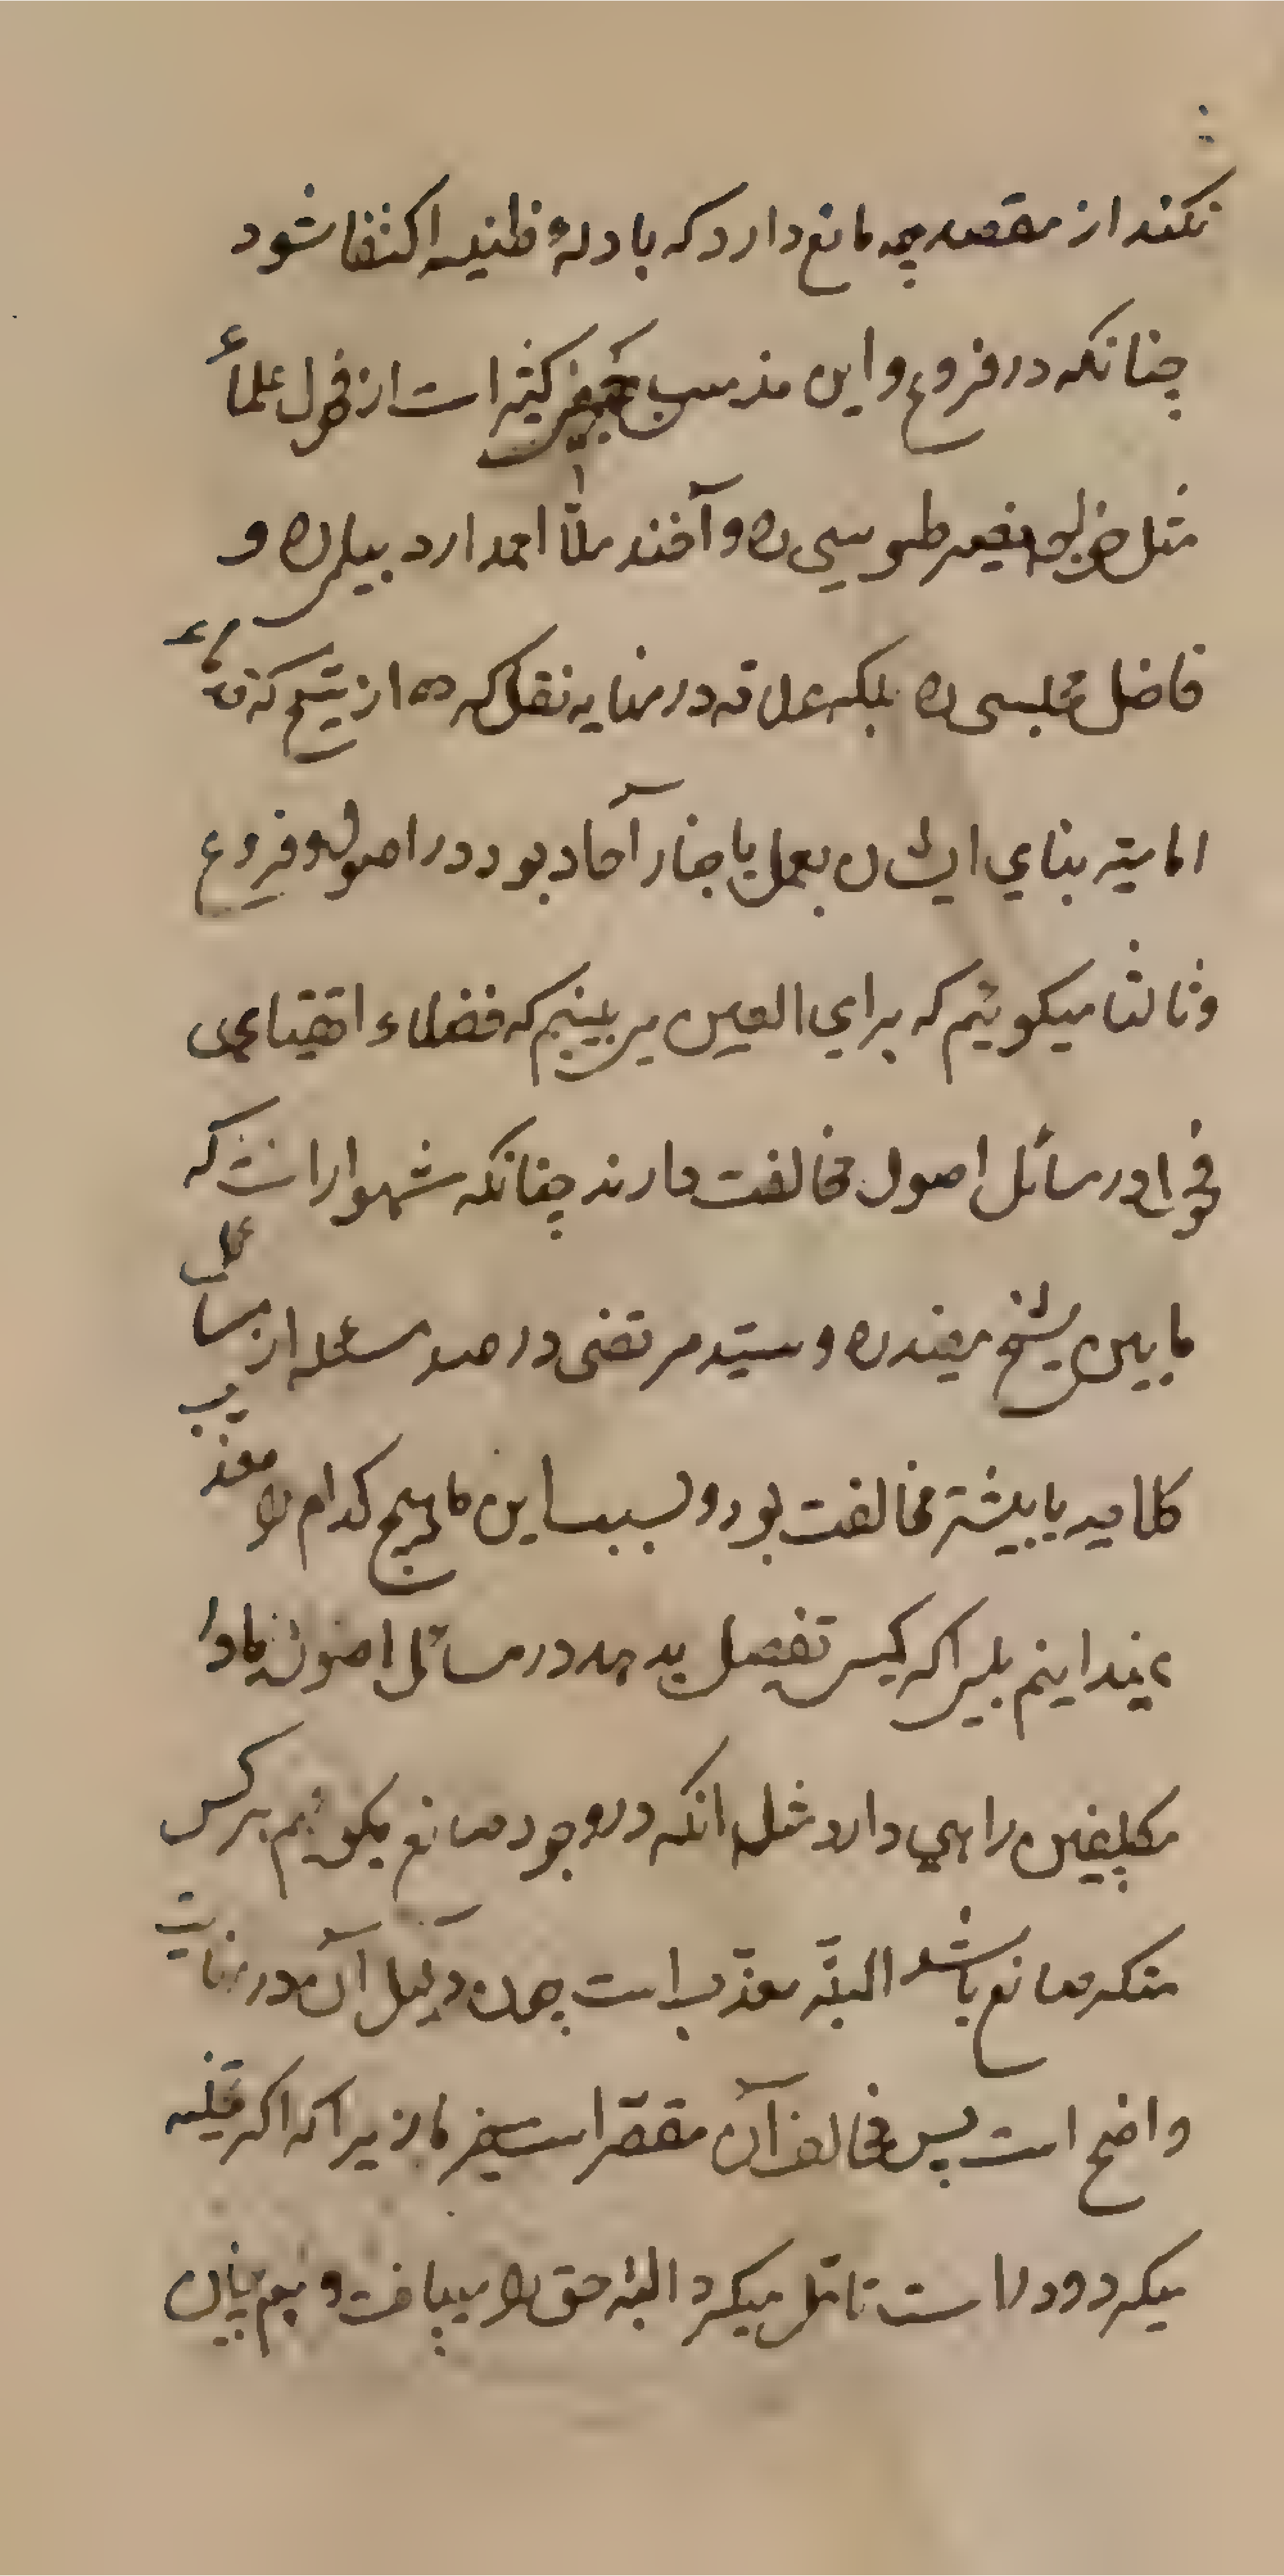 نکند از مقصد چه مانع دارد که بادلهٔ ظنیه اکتفا شود
چنانکه در فروع و این مذهب جمع کثیر است از فحول علماء
مثل خواجه نصیر طوسی ره و آخند ملّا احمد اردبیلی ره و
فاضل مجلسی ره بلکه علامه در نهایه نقل کرده از شیخ که قدماء
امامیّه بنای ایشان بعمل باخبار آحاد بود در اصول و فروع
و ثالثا میکوئیم که برای العین می بینیم که فضلاء اتقیای
فحول در مسائل اصول مخالفت دارند چنانکه مشهور است که
مابین شیخ مفید ره و سیّد مرتضی در صد مسئله از مسائل
کلامیه یا بیشتر مخالفت بود و بسبب این ما هیچ کدام را معذب
نمیدانیم بلی اکر کسی تفصیل بدهد در مسائل اصول یا در
مکلفین راهی دارد مثل انکه در وجود صانع میکوئیم هر کس
منکر صانع باشد البتّه معذّب است چون دلیل آن در نهایت
واضح است پس مخالف آن مقصّر است زیرا که اکر تخلیه
میکرد و در است تامّل میکرد البته حق را مییافت و هم چنین